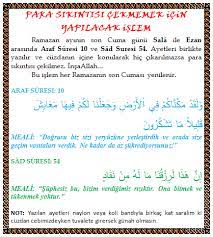 PARA SIKINTISI ÇEKMEMEK İÇİN
YAPILACAK İŞLEM
Ramazan ayının son Cuma günü Salâ ile Ezan
arasında Araf Sûresi 10 ve Sâd Suresi 54. Ayetleri birlikte
yazılır ve cüzdanın içine konularak hiç çıkarılmazsa para
sıkıntısı çekilmez. İnşaAllah...
Bu işlem her Ramazanın son Cuması yenilenir.
ARAF SÛRESİ: 10
وَلَقَدْ مَكَّنَّاكُمْ فِي الْأَرْضِ وَجَعَلْنَا لَكُمْ فِيهَا مَعَايِشَ
قَلِيلًا مَا تَشْكُرُونَ
MEALİ: "Doğrusu biz sizi yeryüzüne yerleştirdik ve orada size
geçim vasıtaları verdik. Ne kadar da az şükrediyorsunuz!"
SÂD SÛRESİ: 54
إِنَّ هَذَا لَرِزْقُنَا مَا لَهُ مِنْ نَفَادٍ
MEALİ: "Şüphesiz bu, bizim verdiğimiz rızıktır. Ona bitmek ve
tükenmek yoktur."
NOT: Yazılan ayetleri naylon veya koli bandıyla birkaç kat saralım ki
cüzdan cebimizdeyken tuvalete girersek günah olmasın.